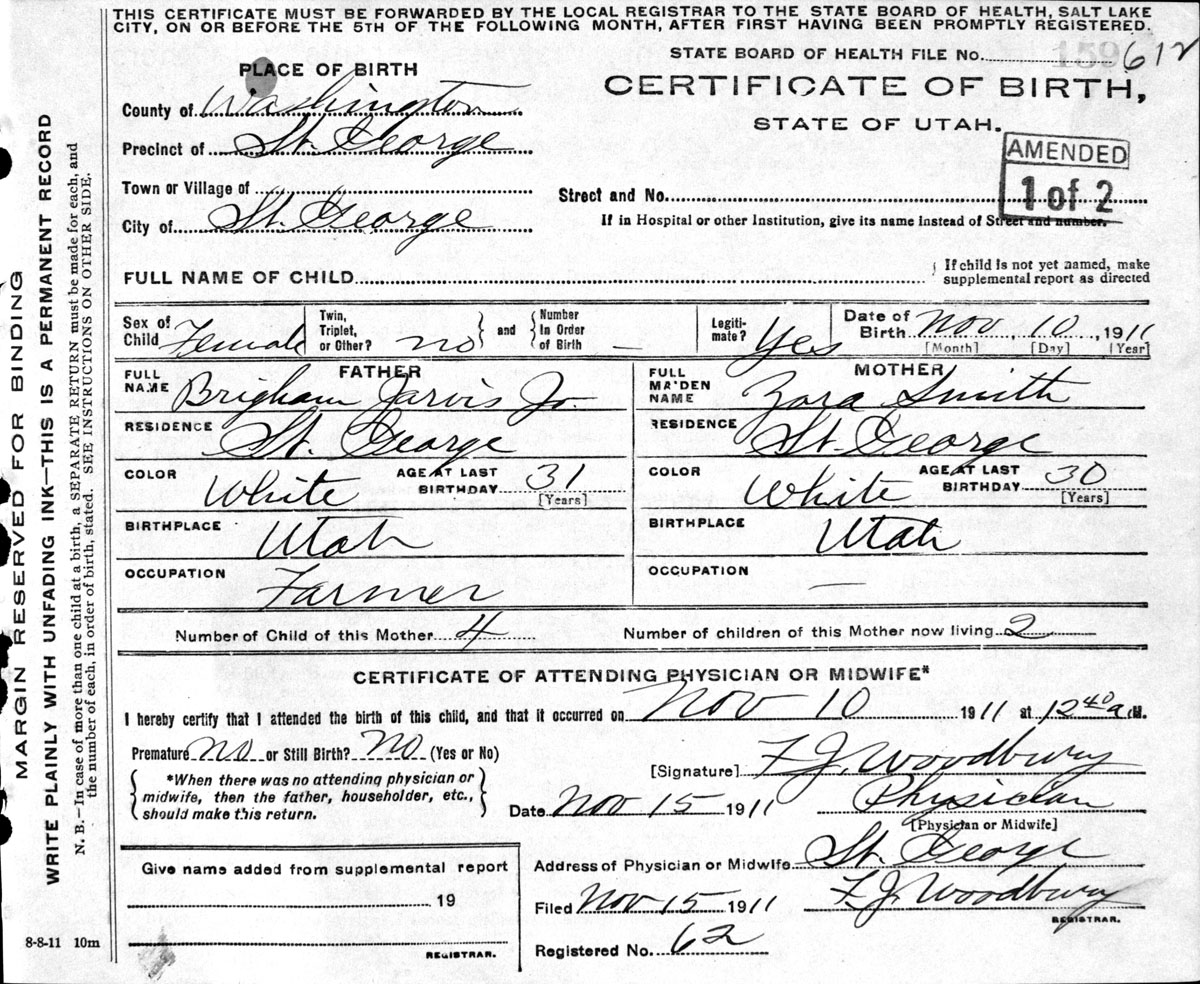 THIS CERTIFICATE MUST BE FORWARDED BY THE LOCAL REGISTRAR TO THE STATE BOARD OF HEALTH, SALT LAKE
CITY, ON OR BEFORE THE 5TH OF THE FOLLOWING MONTH, AFTER FIRST HAVING BEEN PROMPTLY REGISTERED.
STATE BOARD OF HEALTH FILE No. 159 612
PLACE OF BIRTH
CERTIFICATE OF BIRTH,
County of Washington
STATE OF UTAH.
Precinct of St. George
AMENDED
1 of 2
Town or Village of
Street and No.
City of St. George
If in Hospital or other Institution, give its name instead of Street and number.
FULL NAME OF CHILD
If child is not yet named, make
supplemental report as directed
Sex of Child Female
Twin, Triplet, or Other? no
and
Number In Order of Birth —
Legiti-mate? Yes
Date of Birth Nov 10, 1911
[Month] [Day] [Year]
FATHER
MOTHER
FULL NAME Brigham Jarvis Jr.
FULL MAIDEN NAME Zora Smith
RESIDENCE St. George
RESIDENCE St. George
COLOR White AGE AT LAST BIRTHDAY 31 [Years]
COLOR White AGE AT LAST BIRTHDAY 30 [Years]
BIRTHPLACE Utah
BIRTHPLACE Utah
OCCUPATION Farmer
OCCUPATION —
Number of Child of this Mother 4
Number of children of this Mother now living 2
CERTIFICATE OF ATTENDING PHYSICIAN OR MIDWIFE*
I hereby certify that I attended the birth of this child, and that it occurred on Nov 10 1911 at 12 40 a M.
Premature no or Still Birth? no (Yes or No)
[Signature] F. J. Woodbury
*When there was no attending physician or
midwife, then the father, householder, etc.,
should make this return.
Date Nov 15 1911
Physician
[Physician or Midwife]
Address of Physician or Midwife St. George
Give name added from supplemental report
19
Filed Nov 15 1911
F. J. Woodbury
REGISTRAR.
Registered No. 62
REGISTRAR.
8-8-11 10m
MARGIN RESERVED FOR BINDING
WRITE PLAINLY WITH UNFADING INK—THIS IS A PERMANENT RECORD
N. B.—In case of more than one child at a birth, a SEPARATE RETURN must be made for each, and
the number of each, in order of birth, stated. SEE INSTRUCTIONS ON OTHER SIDE.